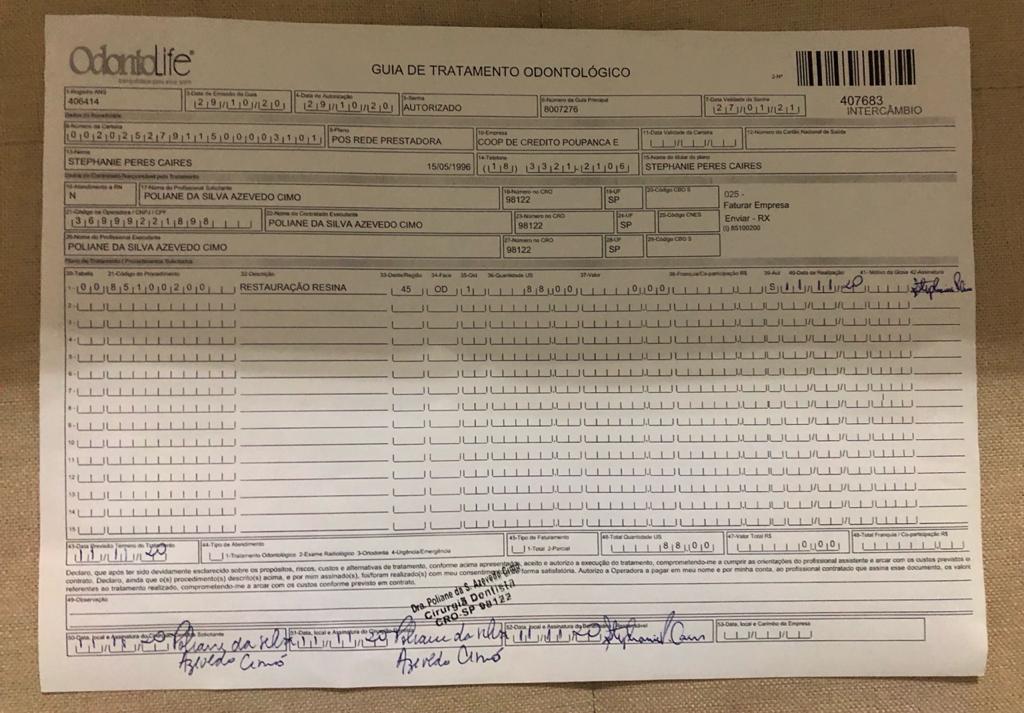 OdontoLife®
tranquilidade para viver bem
GUIA DE TRATAMENTO ODONTOLÓGICO
2-Nº
407683
INTERCÂMBIO
1-Registro ANS
406414
3-Data de Emissão da Guia
29/10/20
4-Data de Autorização
29/10/20
5-Senha
AUTORIZADO
6-Número da Guia Principal
8007276
7-Data Validade da Senha
27/01/21
Dados do Beneficiário
8-Número da Carteira
00202527911500003101
9-Plano
POS REDE PRESTADORA
10-Empresa
COOP DE CREDITO POUPANCA E
11-Data Validade da Carteira
12-Número do Cartão Nacional de Saúde
13-Nome
STEPHANIE PERES CAIRES 15/05/1996
14-Telefone
(18) 3321-2106
15-Nome do titular do plano
STEPHANIE PERES CAIRES
Dados do Contratado Responsável pelo Tratamento
16-Atendimento a RN
N
17-Nome do Profissional Solicitante
POLIANE DA SILVA AZEVEDO CIMO
18-Número no CRO
98122
19-UF
SP
20-Código CBO S
025 -
Faturar Empresa
Enviar - RX
(I) 85100200
21-Código na Operadora / CNPJ / CPF
36999221898
22-Nome do Contratado Executante
POLIANE DA SILVA AZEVEDO CIMO
23-Número no CRO
98122
24-UF
SP
25-Código CNES
26-Nome do Profissional Executante
POLIANE DA SILVA AZEVEDO CIMO
27-Número no CRO
98122
28-UF
SP
29-Código CBO S
Plano de Tratamento / Procedimentos Solicitados
30-Tabela 31-Código do Procedimento 32-Descrição 33-Dente/Região 34-Face 35-Qtd 36-Quantidade US 37-Valor 38-Franquia/Co-participação R$ 39-Aut 40-Data de Realização 41- Motivo da Glosa 42-Assinatura
1- 00 85100200 RESTAURAÇÃO RESINA 45 OD 1 88 00 0 00 S 11/11/20
2-
3-
4-
5-
6-
7-
8-
9-
10-
11-
12-
13-
14-
15-
43-Data Previsão Término do Tratamento
11/11/20
44-Tipo de Atendimento
1-Tratamento Odontológico 2-Exame Radiológico 3-Ortodontia 4-Urgência/Emergência
45-Tipo de Faturamento
1-Total 2-Parcial
46-Total Quantidade US
88 00
47-Valor Total R$
0 00
48-Total Franquia / Co-participação R$
Declaro, que após ter sido devidamente esclarecido sobre os propósitos, riscos, custos e alternativas de tratamento, conforme acima apresentados, aceito e autorizo a execução do tratamento, comprometendo-me a cumprir as orientações do profissional assistente e arcar com os custos previstos o
contrato. Declaro, ainda que o(s) procedimento(s) descrito(s) acima, e por mim assinado(s), foi/foram realizado(s) com meu consentimento e de forma satisfatória. Autorizo a Operadora a pagar em meu nome e por minha conta, ao profissional contratado que assina esse documento, os valores
referentes ao tratamento realizado, comprometendo-me a arcar com os custos conforme previsto em contrato.
49-Observação
Dra. Poliane da S. Azevedo Cimo
Cirurgiã Dentista
CRO-SP 98122
50-Data, local e Assinatura do Solicitante
11/11/20 Poliane da Silva
Azevedo Cimó
51-Data, local e Assinatura do
11/11/20 Poliane da Silva
Azevedo Cimó
52-Data, local e Assinatura do
11/11/20
53-Data, local e Carimbo da Empresa